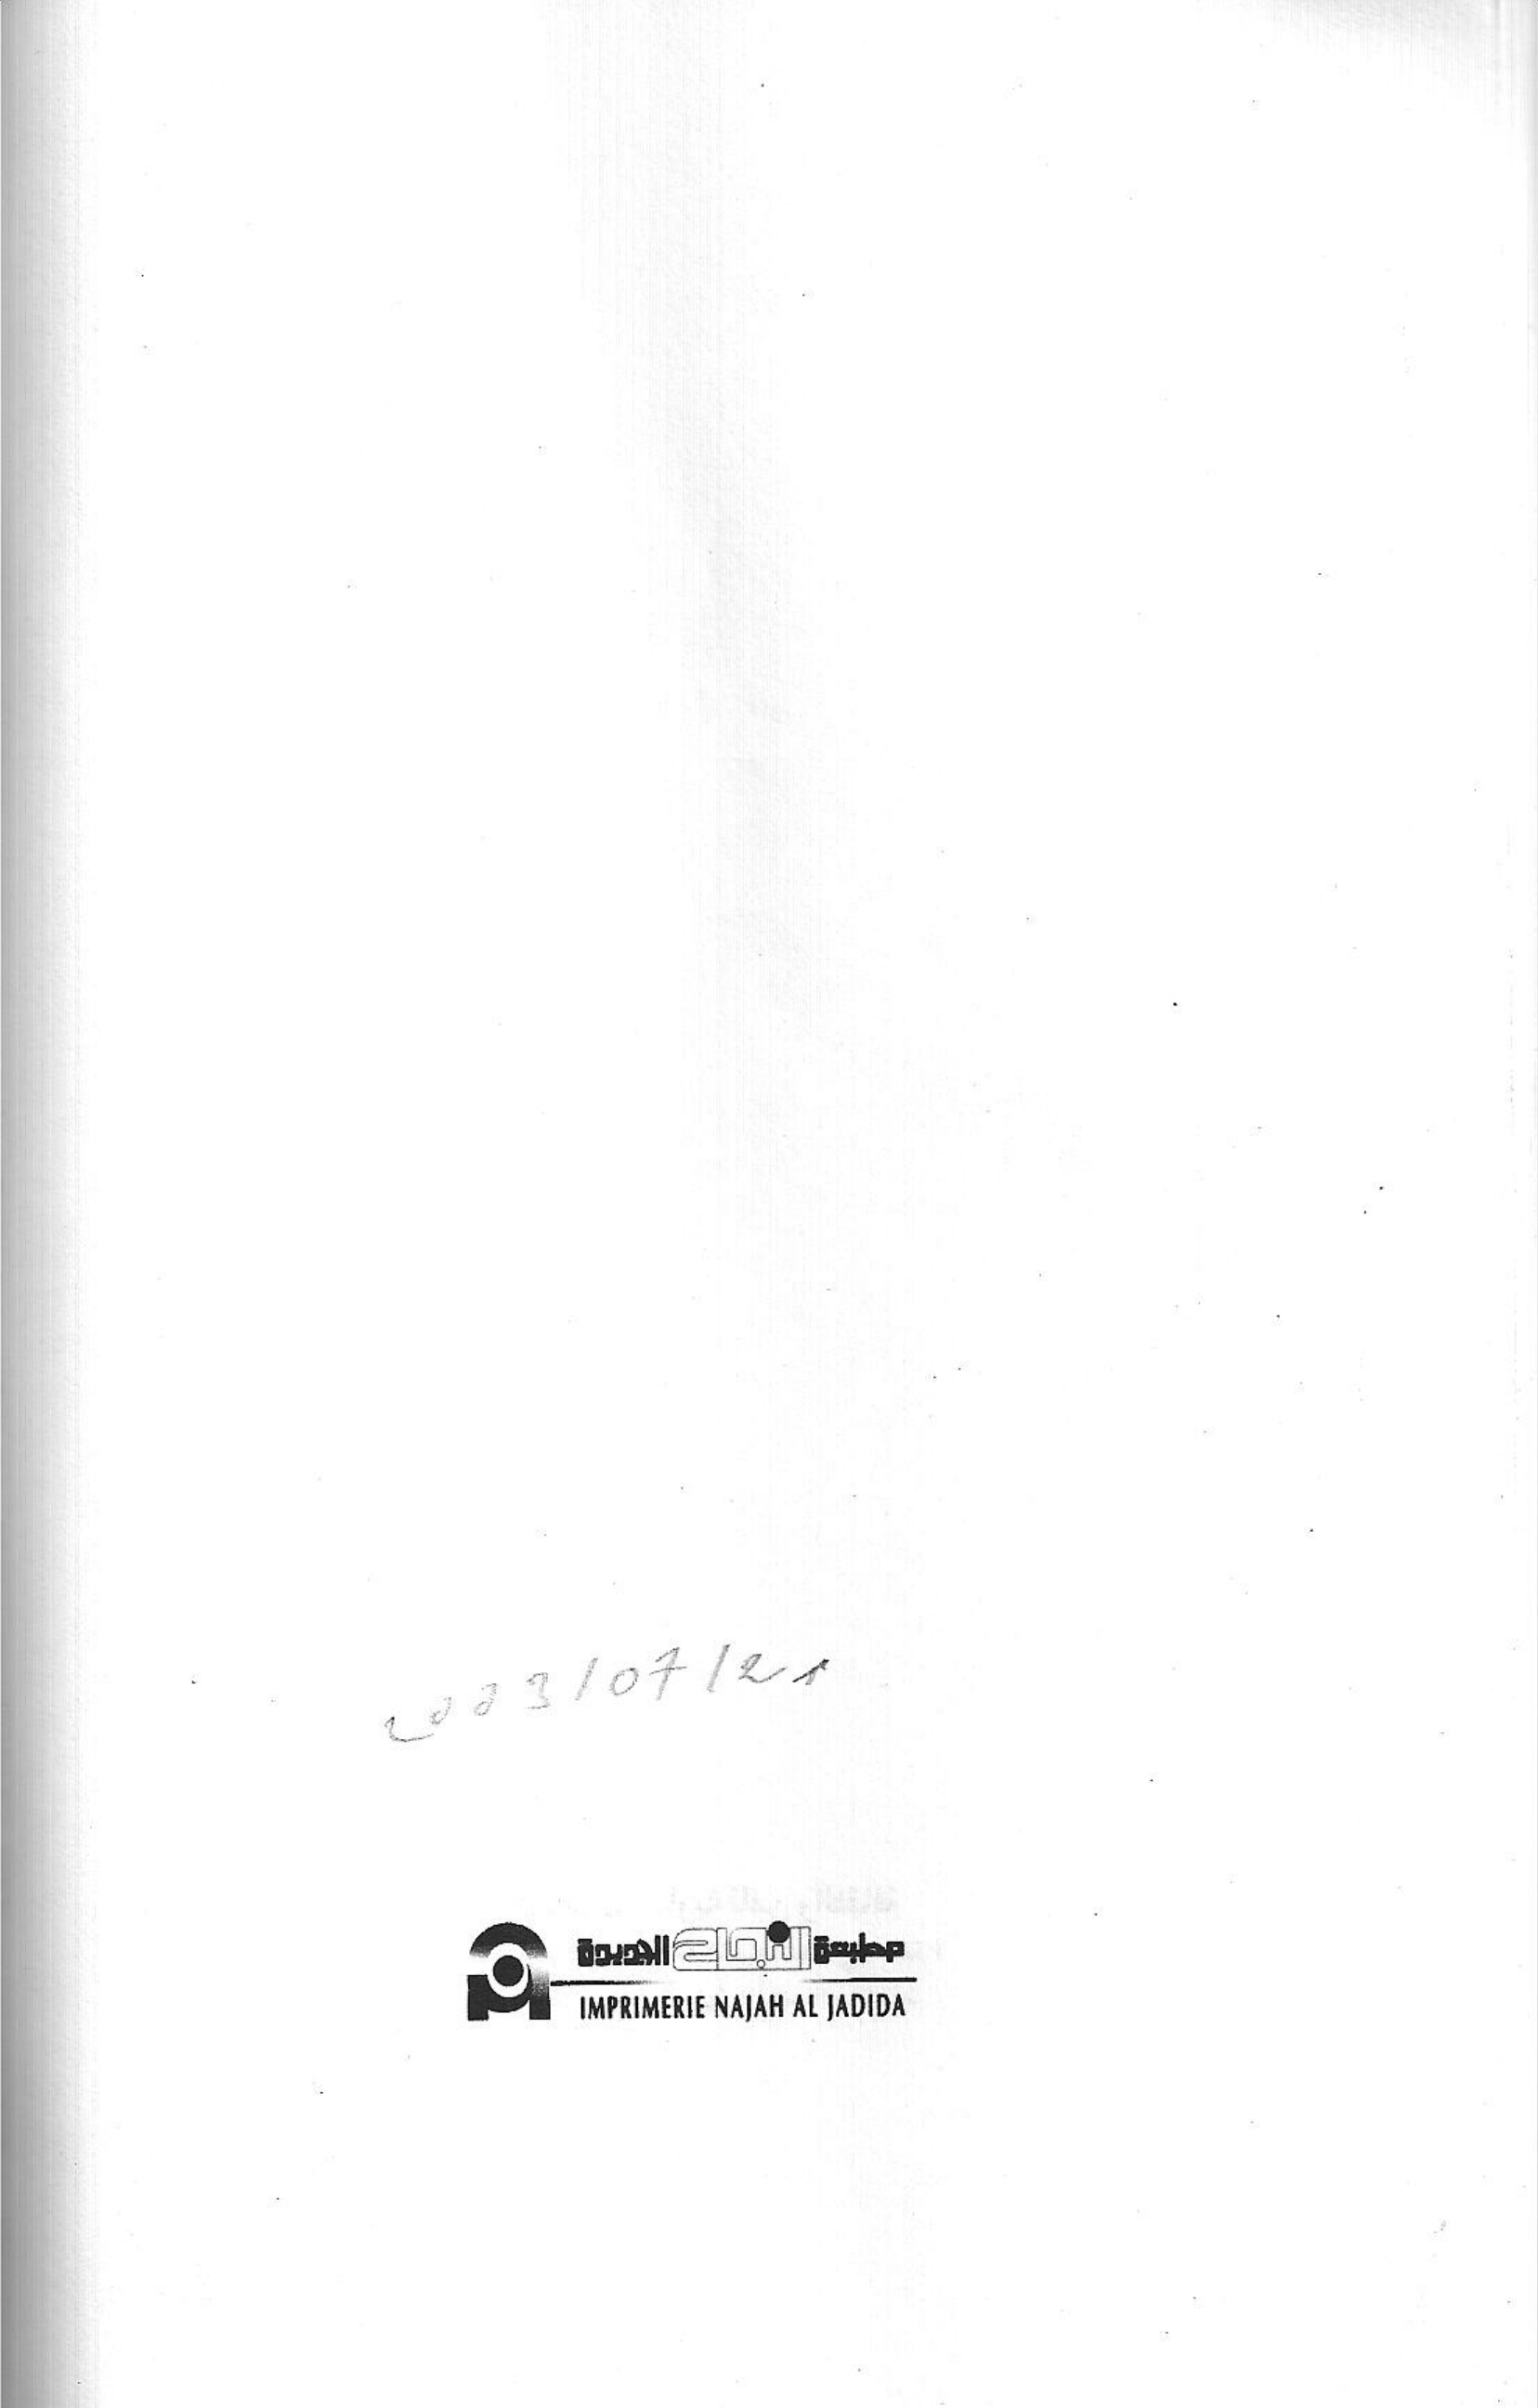 2003/07/21
مطبعة النجاح الجديدة
IMPRIMERIE NAJAH AL JADIDA